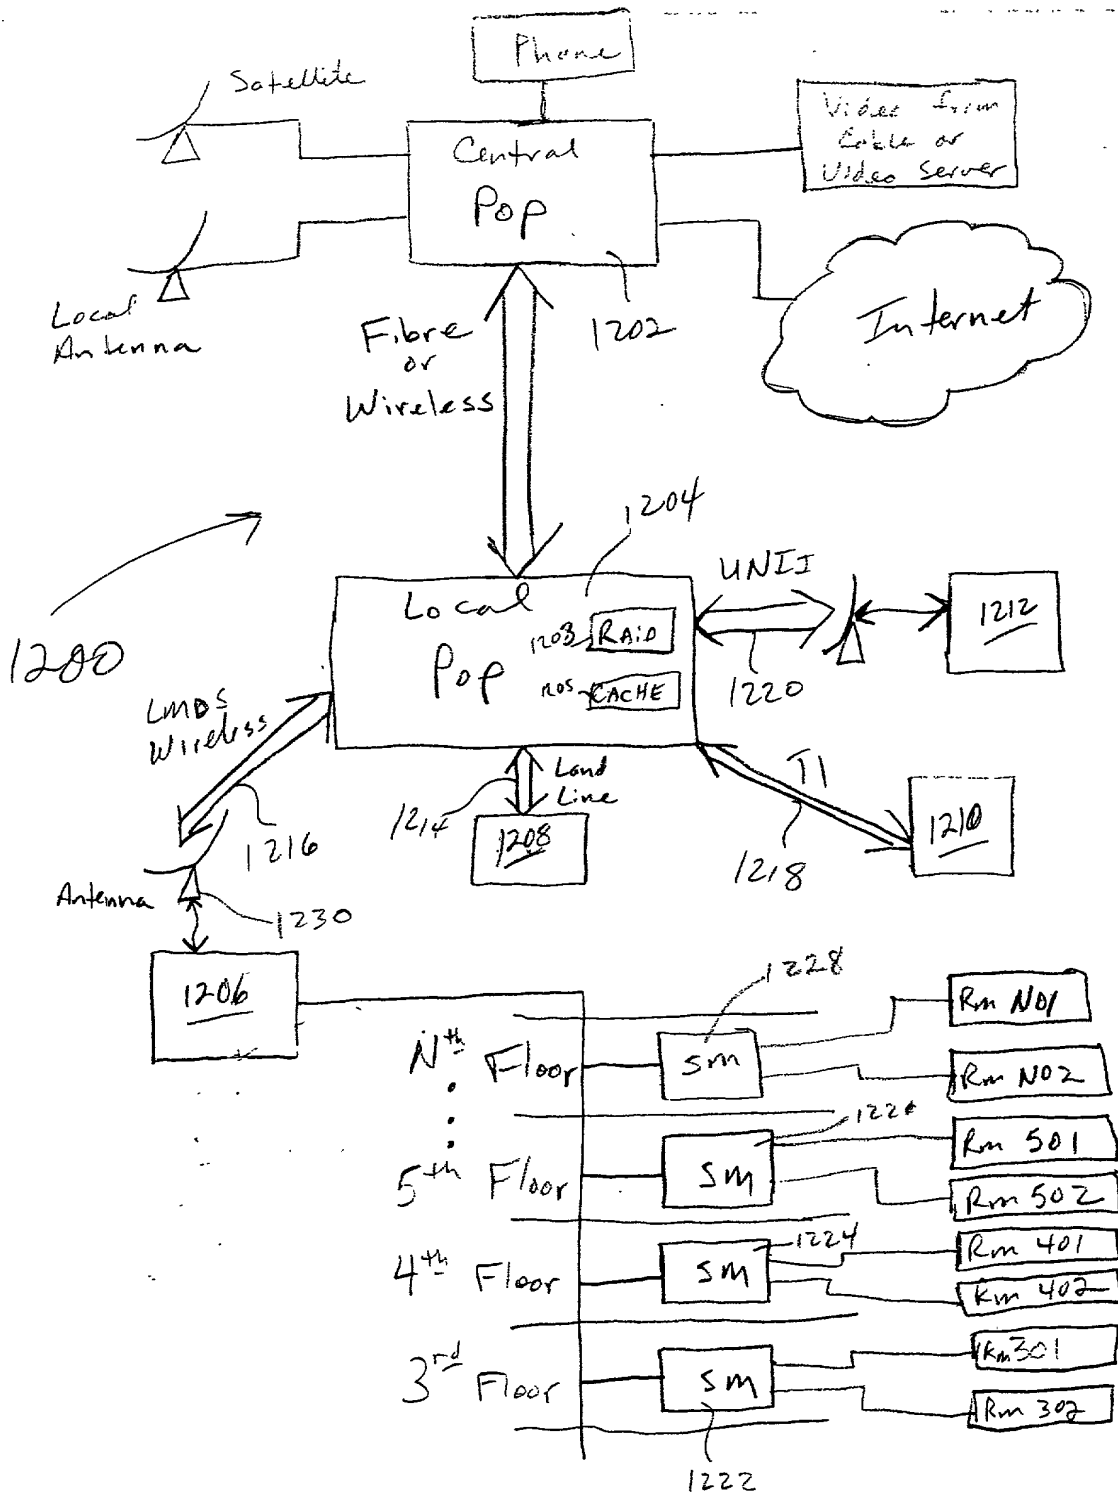 Phone
Satellite
Central
Pop
Video from
Cable or
Video Server
Local
Antenna
Fibre
or
Wireless
1202
Internet
1204
1200
Local
Pop
1203
RAID
1205
CACHE
UNII
1220
1212
LMDS
Wireless
1216
1214
Land
Line
1208
T1
1218
1210
Antenna
1230
1206
1228
Nth Floor
SM
Rm N01
Rm N02
5th Floor
SM
Rm 501
Rm 502
4th Floor
SM
1224
Rm 401
Rm 402
3rd Floor
SM
Rm 301
Rm 302
1222